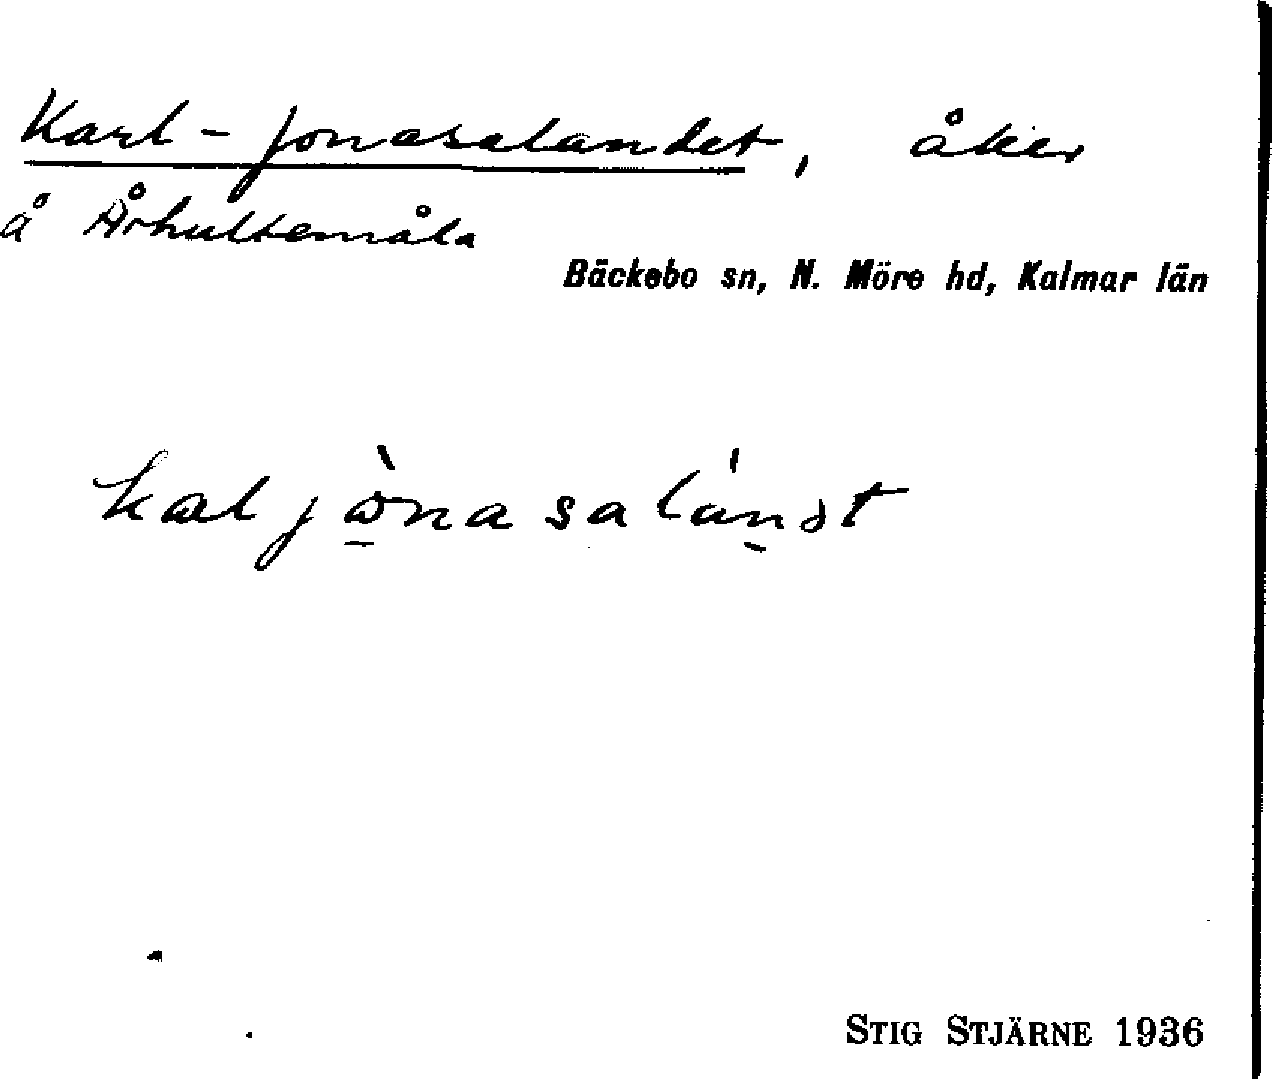 Karl-Jonasalandet, åker
å Århultemåla
Bäckebo sn, N. Möre hd, Kalmar län
kaljònasalánət
STIG STJÄRNE 1936